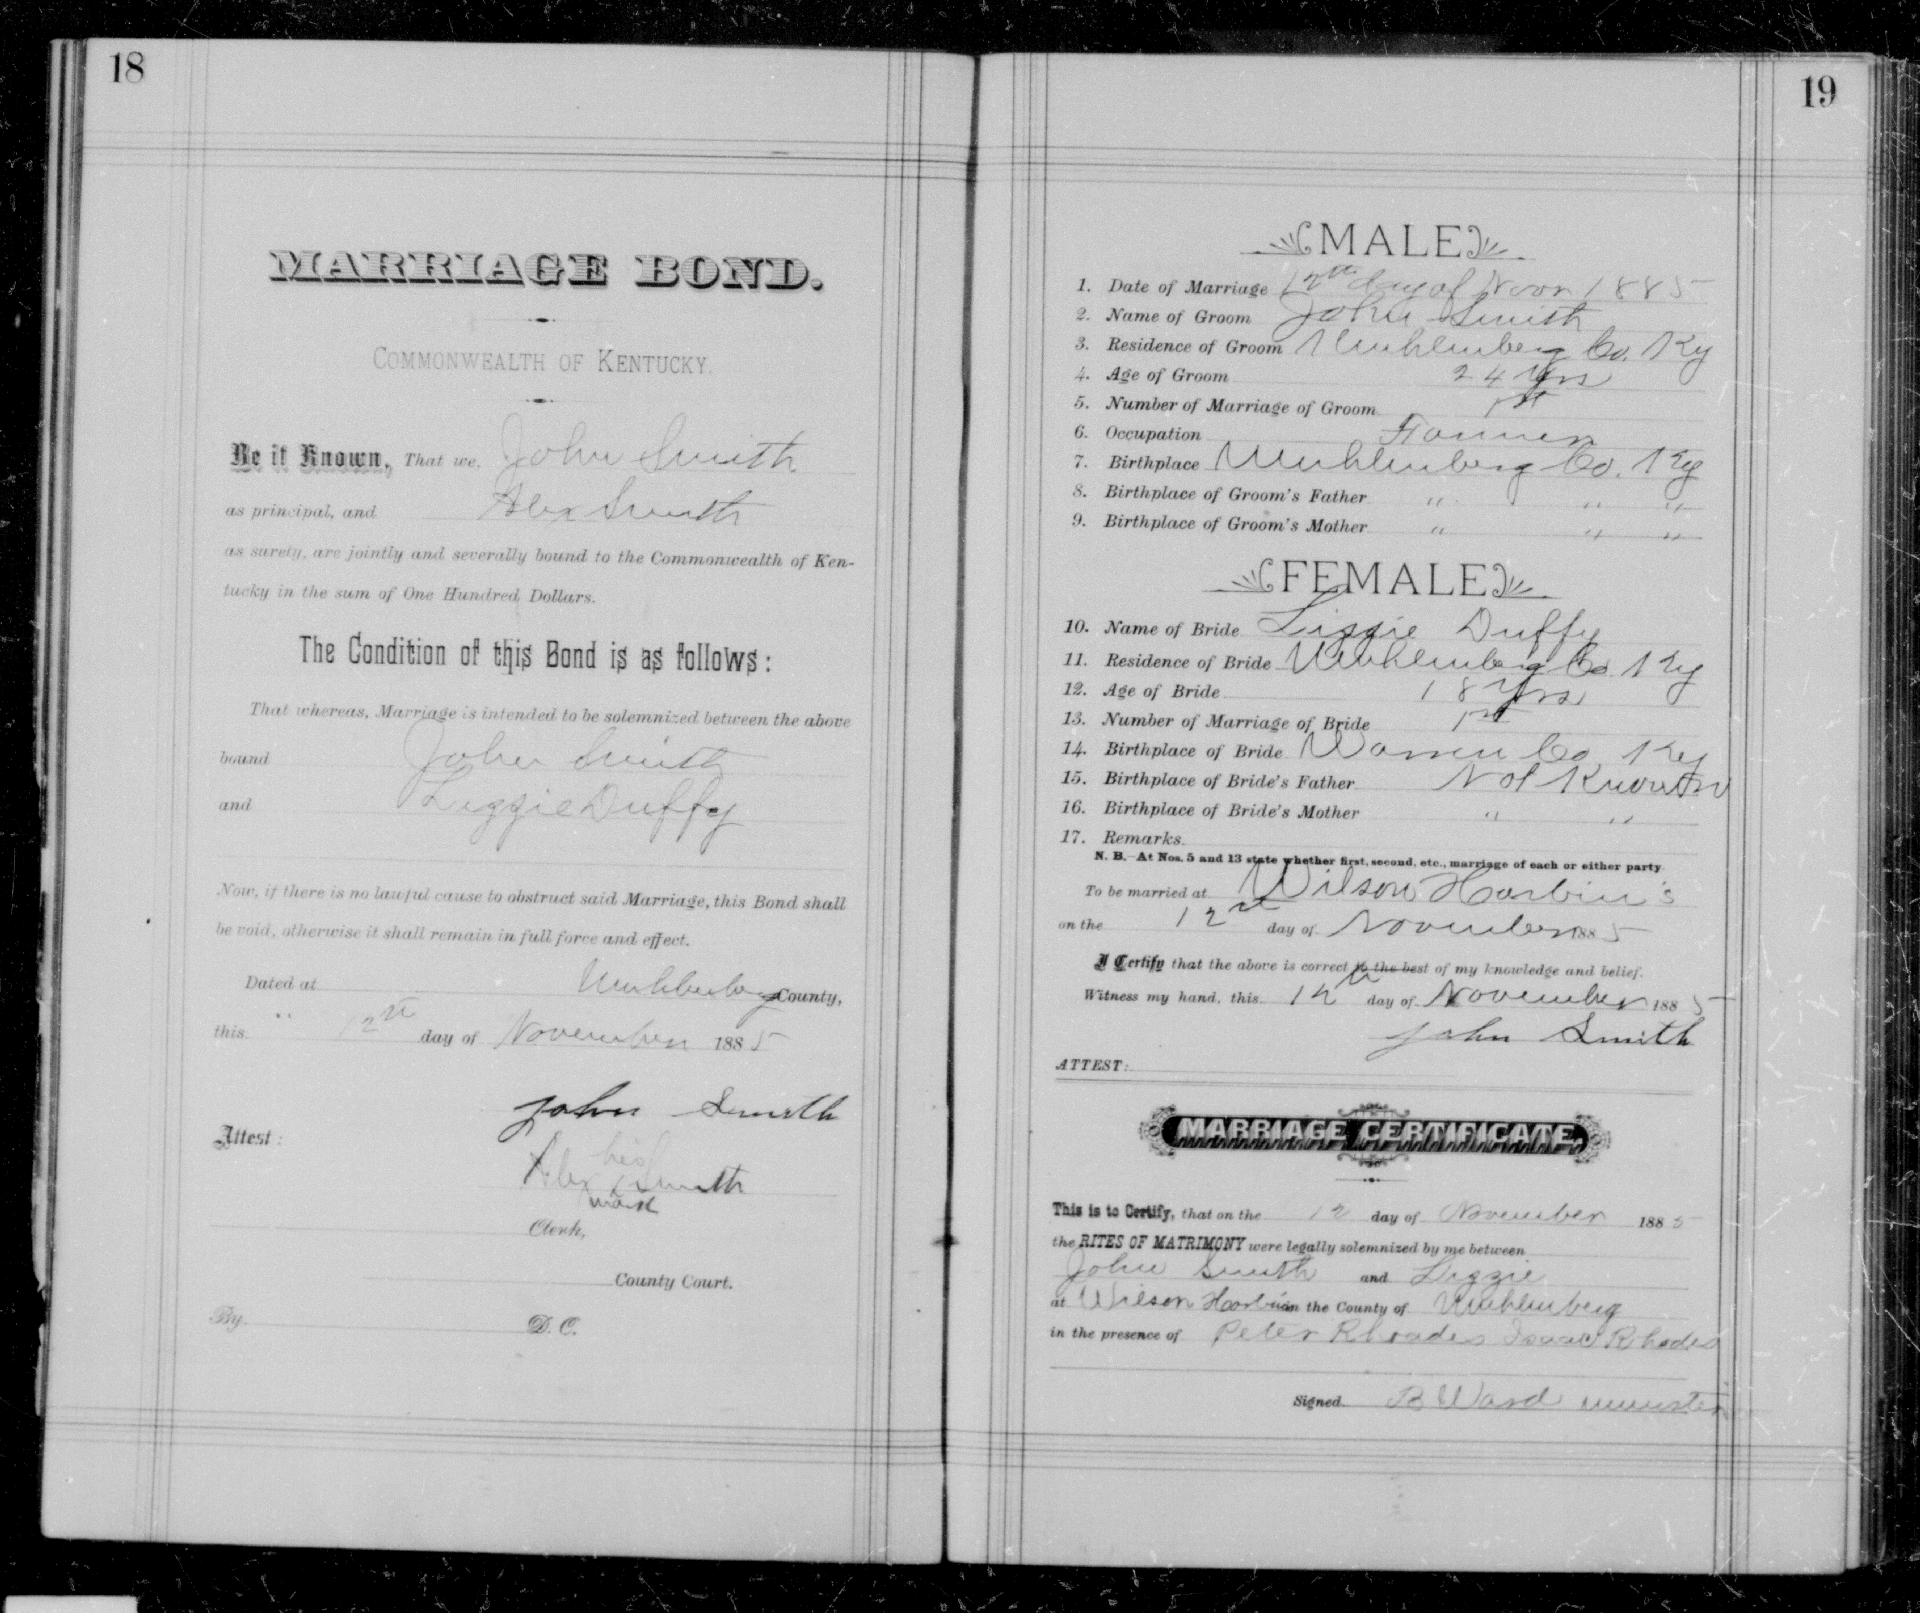 18
MARRIAGE BOND.
COMMONWEALTH OF KENTUCKY.
Be it Known, That we, John Smith
as principal, and Alex Smith
as surety, are jointly and severally bound to the Commonwealth of Ken-
tucky in the sum of One Hundred Dollars.
The Condition of this Bond is as follows:
That whereas, Marriage is intended to be solemnized between the above
bound John Smith
and Lizzie Duffy
Now, if there is no lawful cause to obstruct said Marriage, this Bond shall
be void, otherwise it shall remain in full force and effect.
Dated at Muhlenberg County,
this 12th day of November 1885
John Smith
Attest:
his
Alex x Smith
mark
Clerk,
County Court.
By D. C.
19
MALE
1. Date of Marriage 12th day of Novr 1885
2. Name of Groom John Smith
3. Residence of Groom Muhlenberg Co. Ky
4. Age of Groom 24 Yrs
5. Number of Marriage of Groom 1st
6. Occupation Farmer
7. Birthplace Muhlenberg Co. Ky
8. Birthplace of Groom's Father " " "
9. Birthplace of Groom's Mother " " "
FEMALE
10. Name of Bride Lizzie Duffy
11. Residence of Bride Muhlenberg Co. Ky
12. Age of Bride 18 Yrs
13. Number of Marriage of Bride 1st
14. Birthplace of Bride Warren Co. Ky
15. Birthplace of Bride's Father Not Known
16. Birthplace of Bride's Mother " "
17. Remarks
N. B.—At Nos. 5 and 13 state whether first, second, etc., marriage of each or either party
To be married at Wilson Harbin's
on the 12th day of November 1885
I Certify that the above is correct to the best of my knowledge and belief.
Witness my hand, this 12th day of November 1885
John Smith
ATTEST:
MARRIAGE CERTIFICATE.
This is to Certify, that on the 12 day of November 1885
the RITES OF MATRIMONY were legally solemnized by me between
John Smith and Lizzie
at Wilson Harbin in the County of Muhlenberg
in the presence of Peter Rhoades Isaac Rhodes
Signed B Ward minister